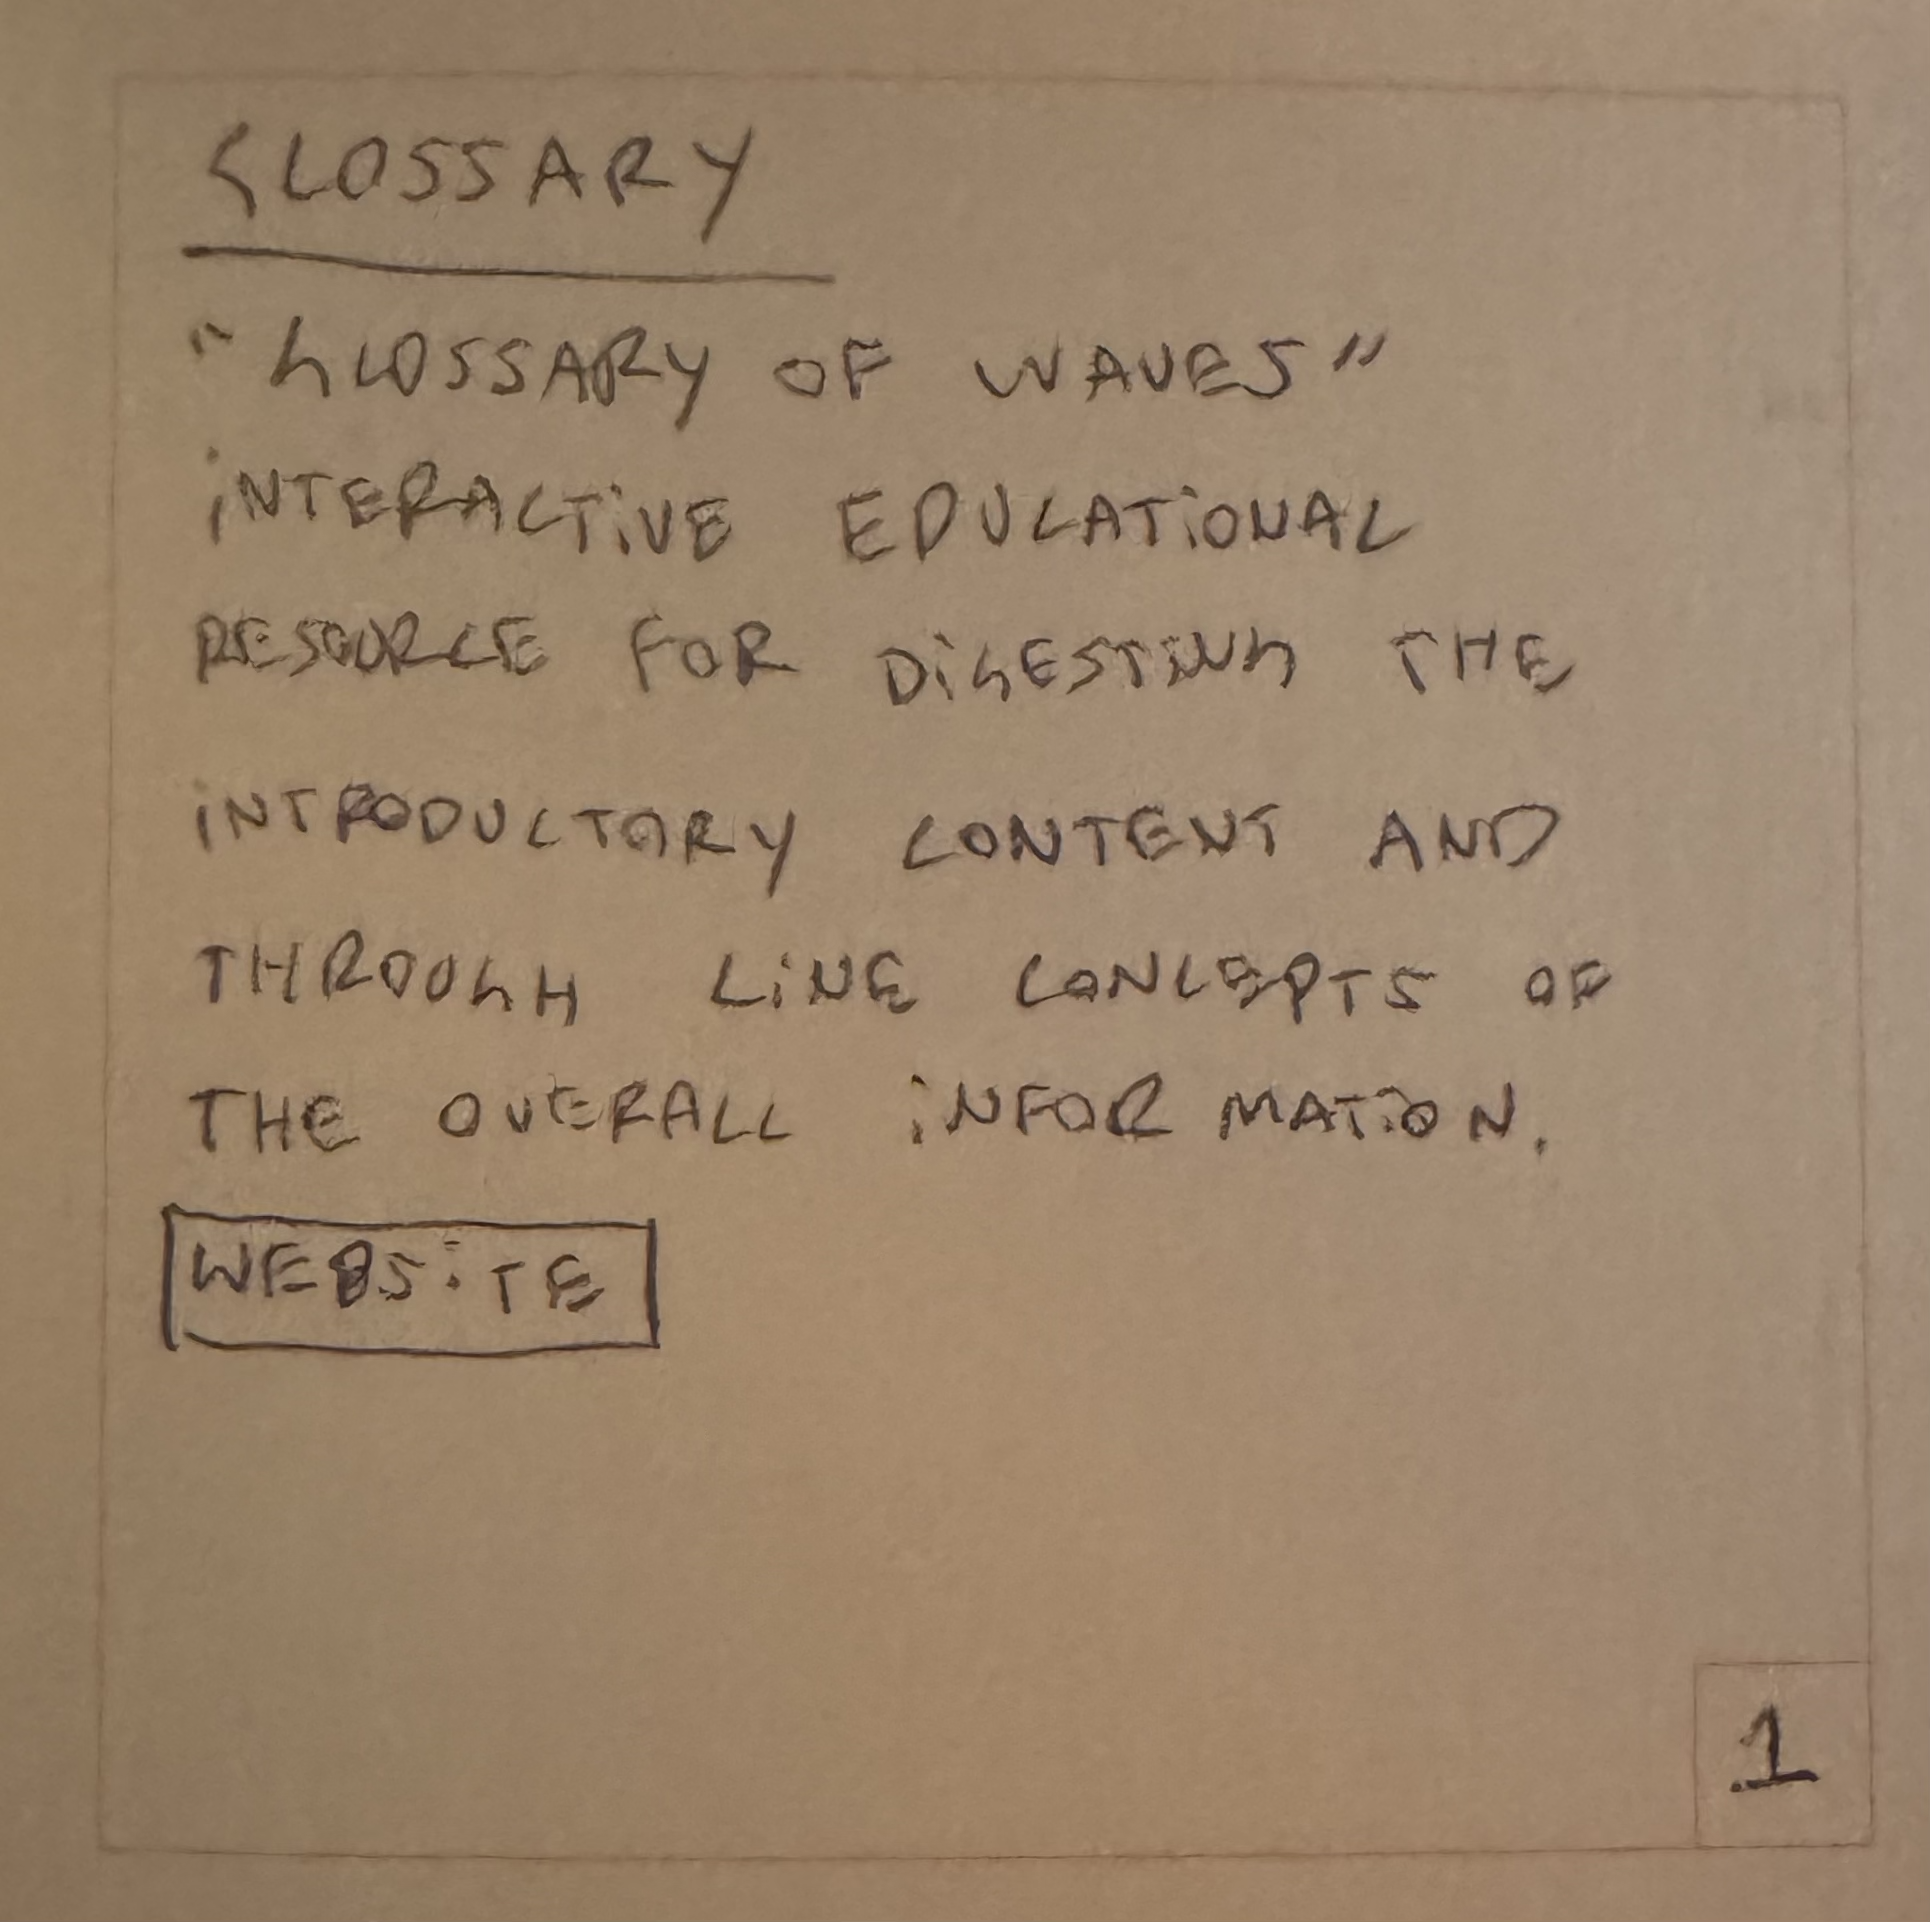 GLOSSARY
"GLOSSARY OF WAVES"
iNTERACTiVE EDUCATiONAL
RESOURCE FOR DiGESTING THE
iNTRODUCTORY CONTENT AND
THROUGH LiNE CONCEPTS OF
THE OVERALL iNFORMATiON.
WEBSiTE
1